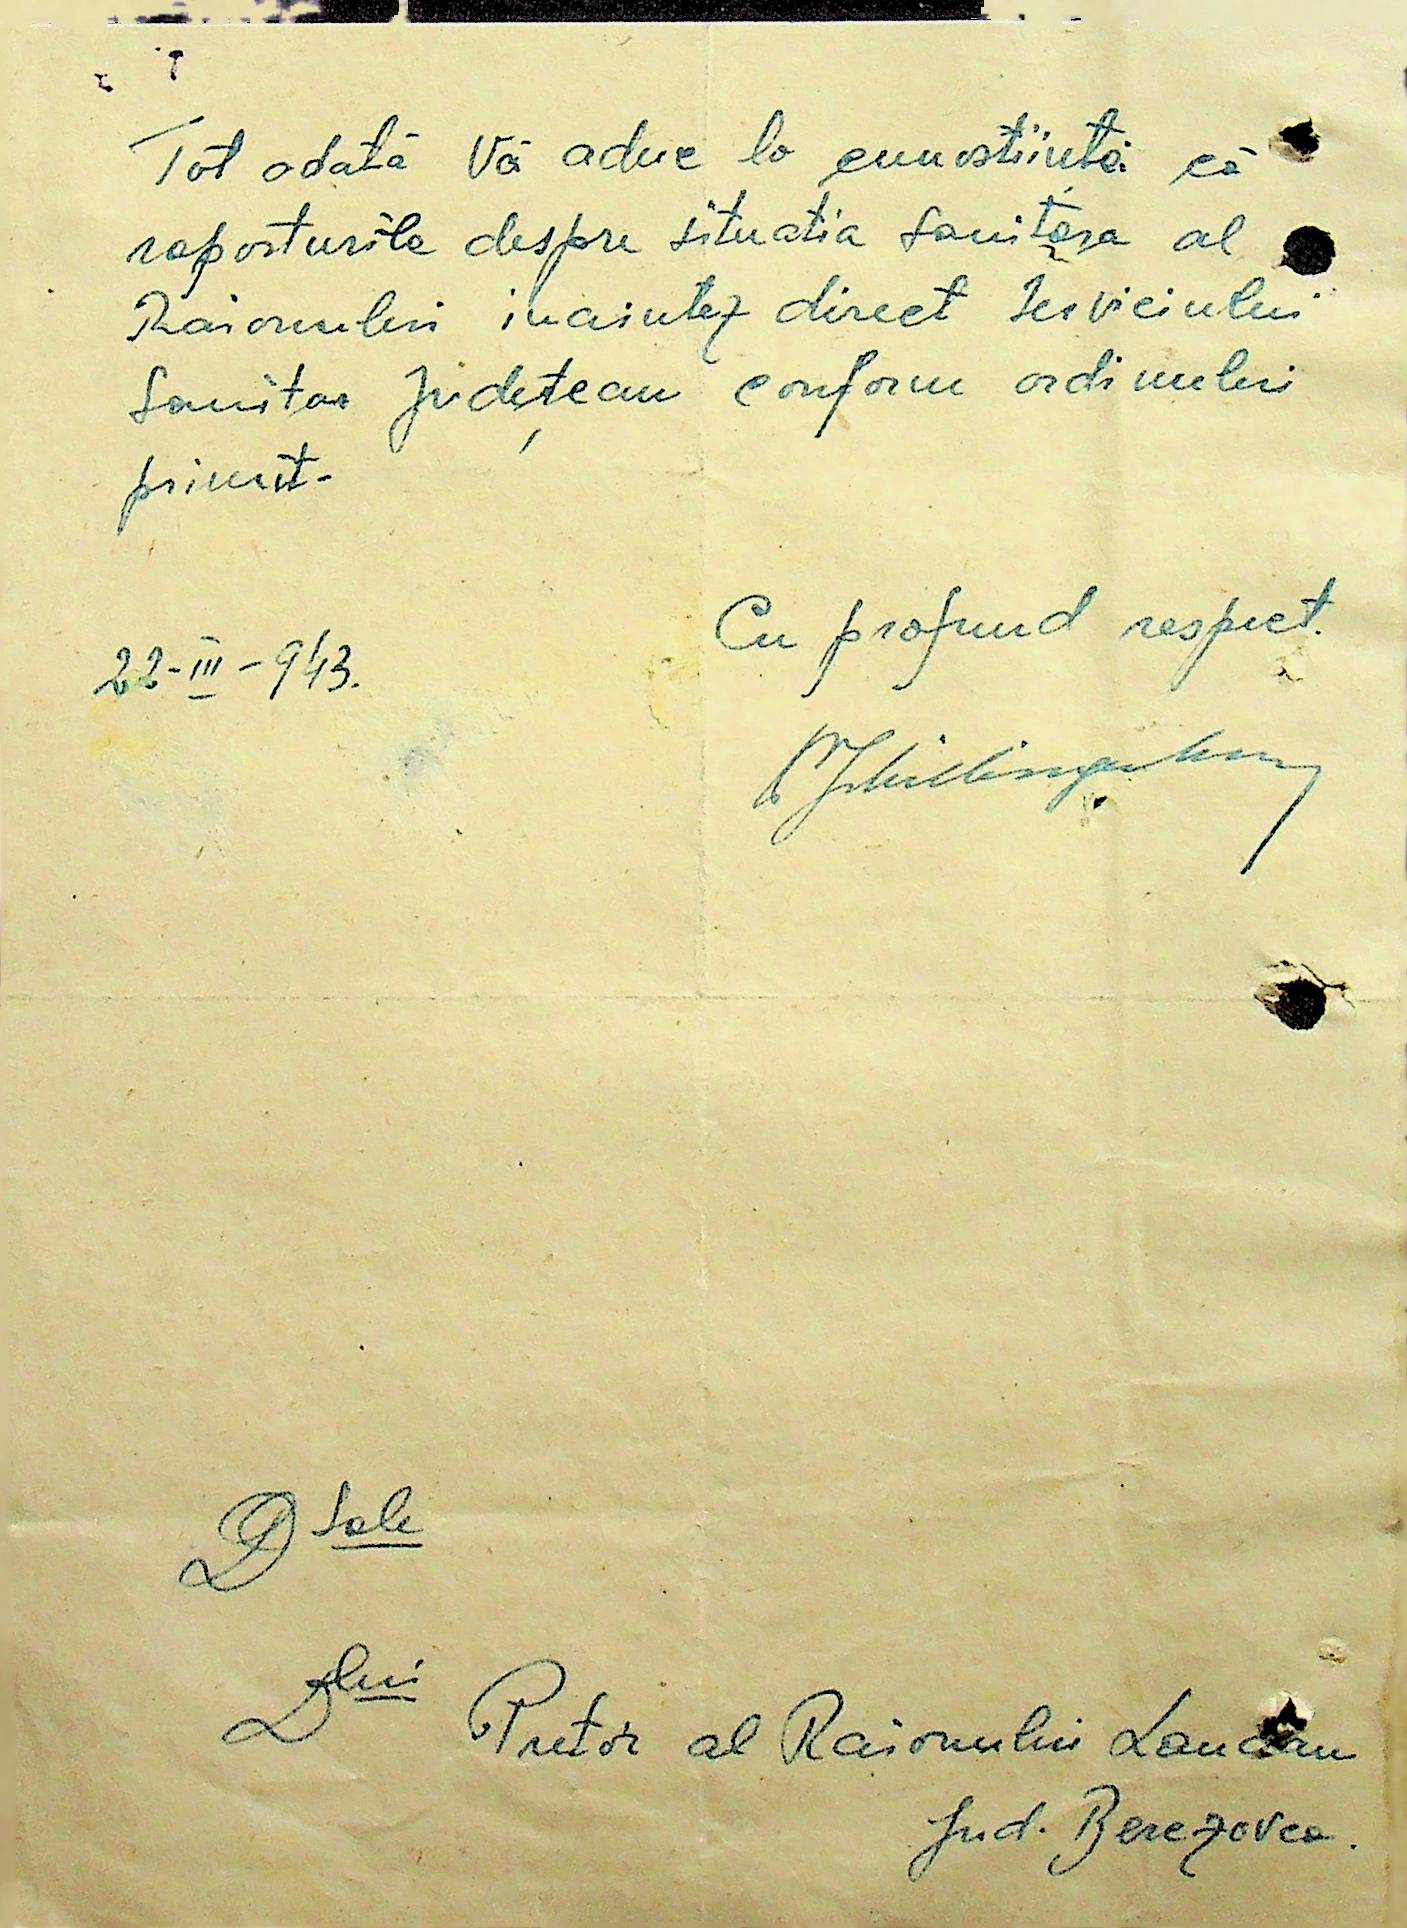 Tot odată Vă aduc la cunostiintă că
raporturile despre situatia sanitara al
Raionului inaintez direct Serviciului
Sanitar Județean conform ordinului
primit-
Cu profund respect.
22-III-943.
D sale
Dlui Pretor al Raionului Landau
Jud. Berezovca.